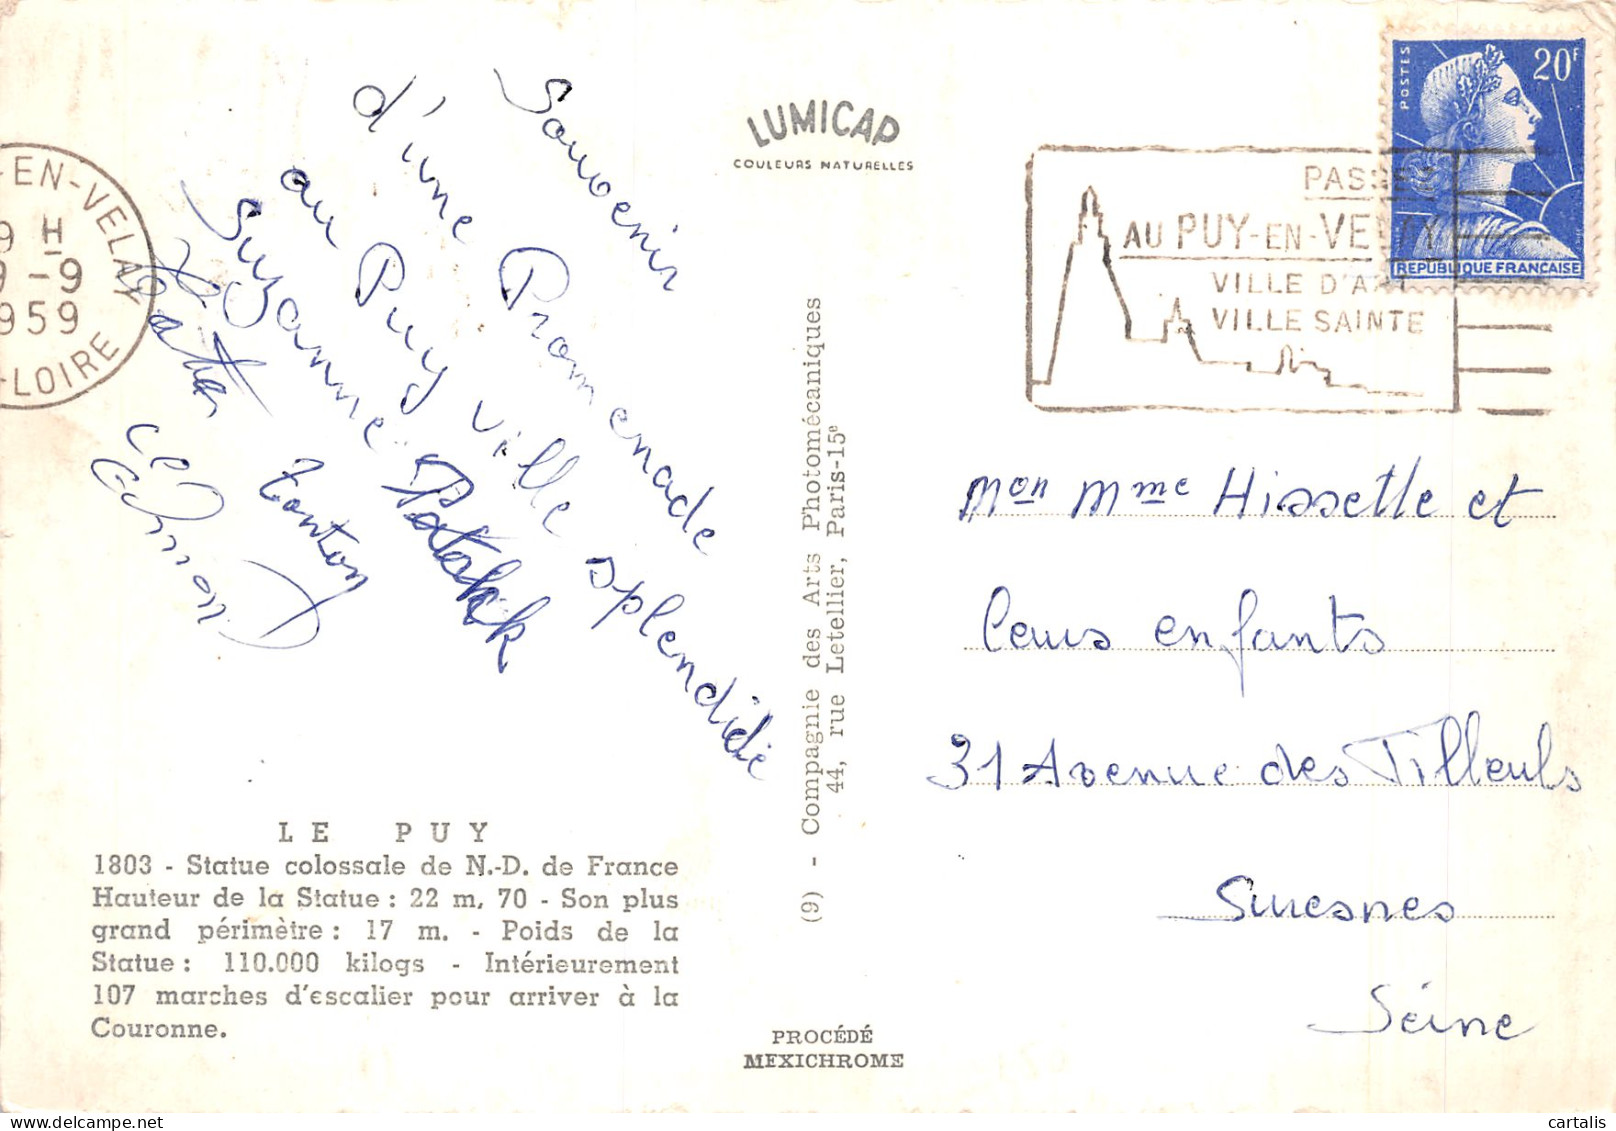 Souvenir
d'une Promenade
au Puy ville splendide
Suzanne Patakk
Tonton
LE PUY
1803 - Statue colossale de N.-D. de France
Hauteur de la Statue : 22 m, 70 - Son plus
grand périmètre : 17 m. - Poids de la
Statue : 110.000 kilogs - Intérieurement
107 marches d'escalier pour arriver à la
Couronne.
-EN-VELAY
9 H
9-9
959
-LOIRE
LUMICAP
COULEURS NATURELLES
(9) - Compagnie des Arts Photomécaniques
44, rue Letellier, Paris-15e
PROCÉDÉ
MEXICHROME
PASSEZ
AU PUY-EN-VELAY
VILLE D'ART
VILLE SAINTE
POSTES
20F
REPUBLIQUE FRANCAISE
Mon Mme Hissette et
leurs enfants
31 Avenue des Tilleuls
Suresnes
Seine
cartalis